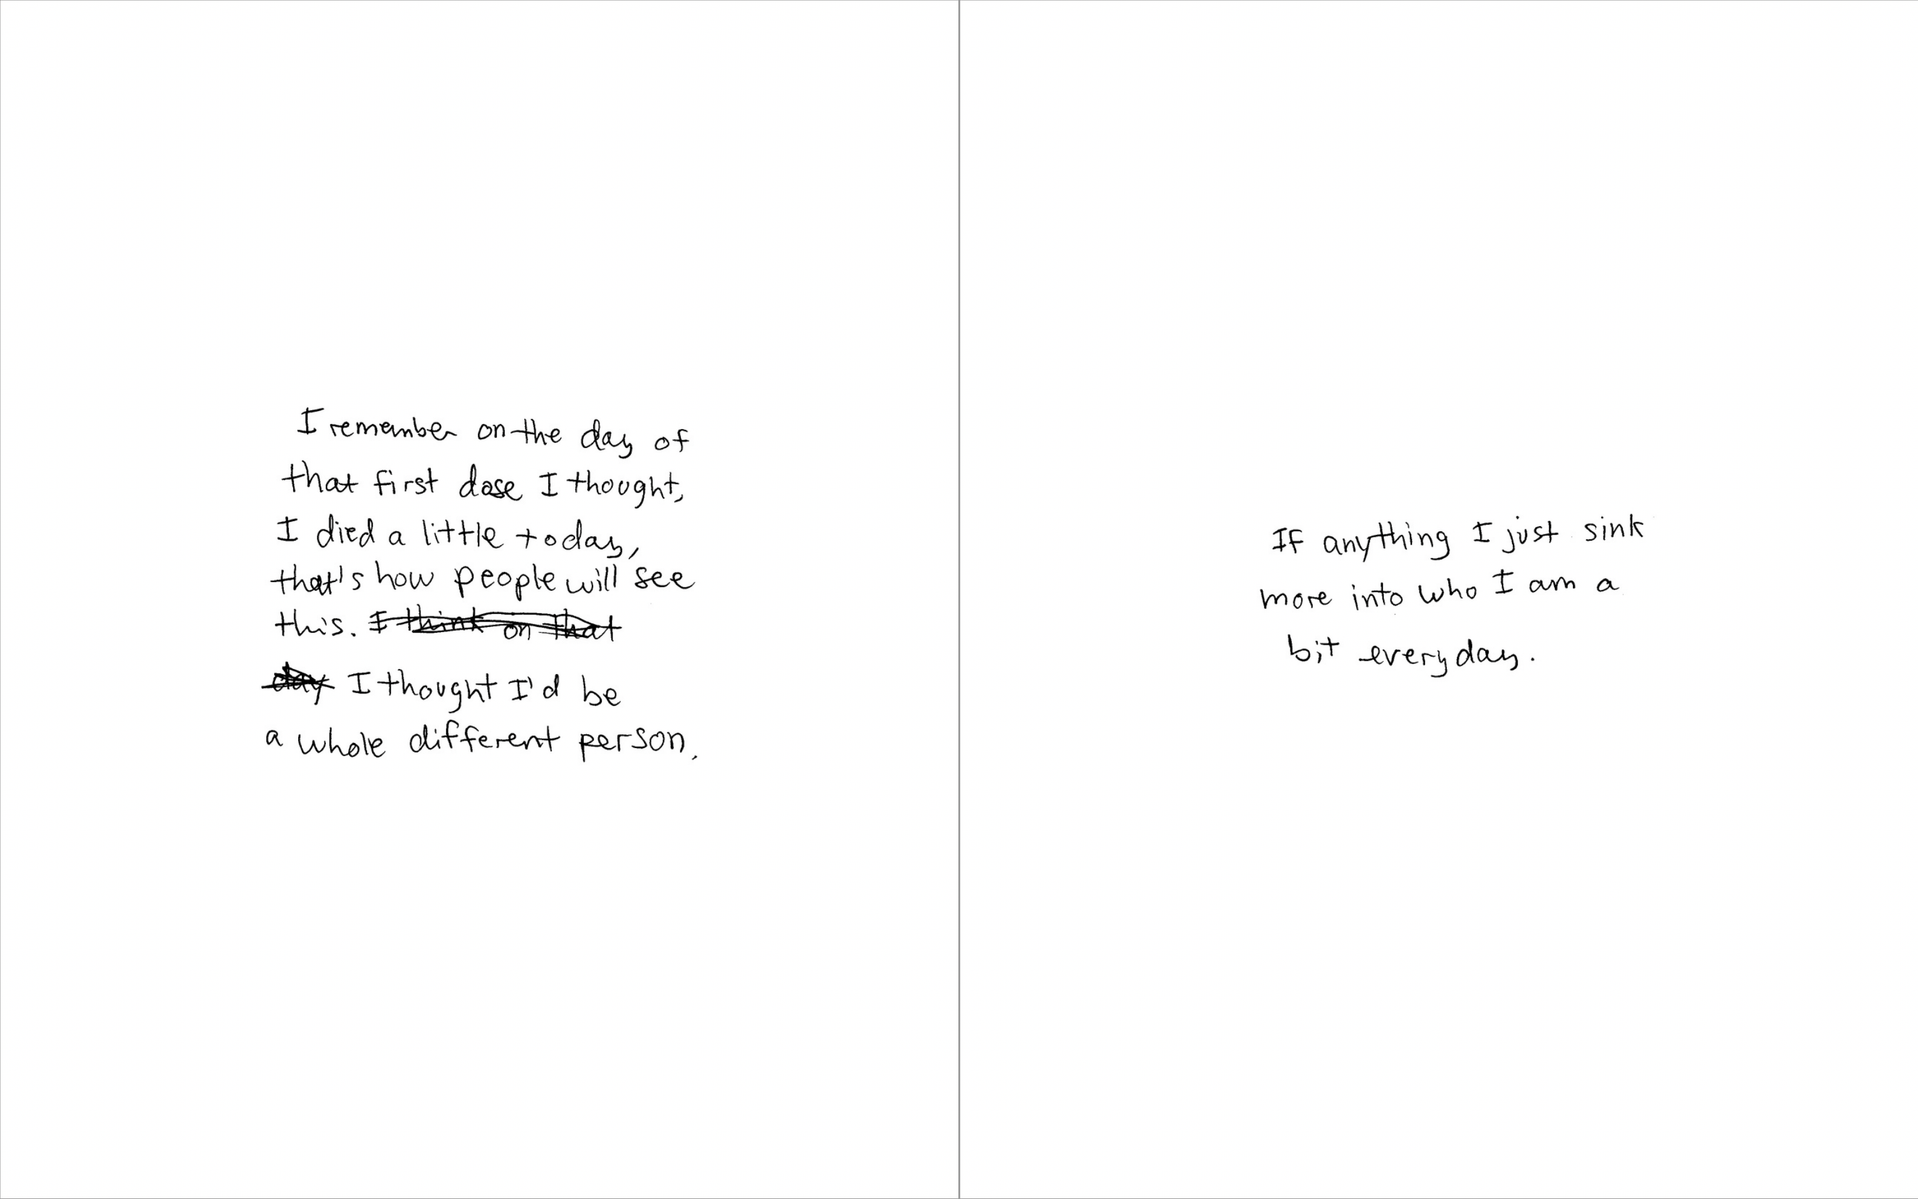 I remember on the day of
that first dose I thought,
I died a little today,
that's how people will see
this. I think on that
day I thought I'd be
a whole different person.
If anything I just sink
more into who I am a
bit everyday.